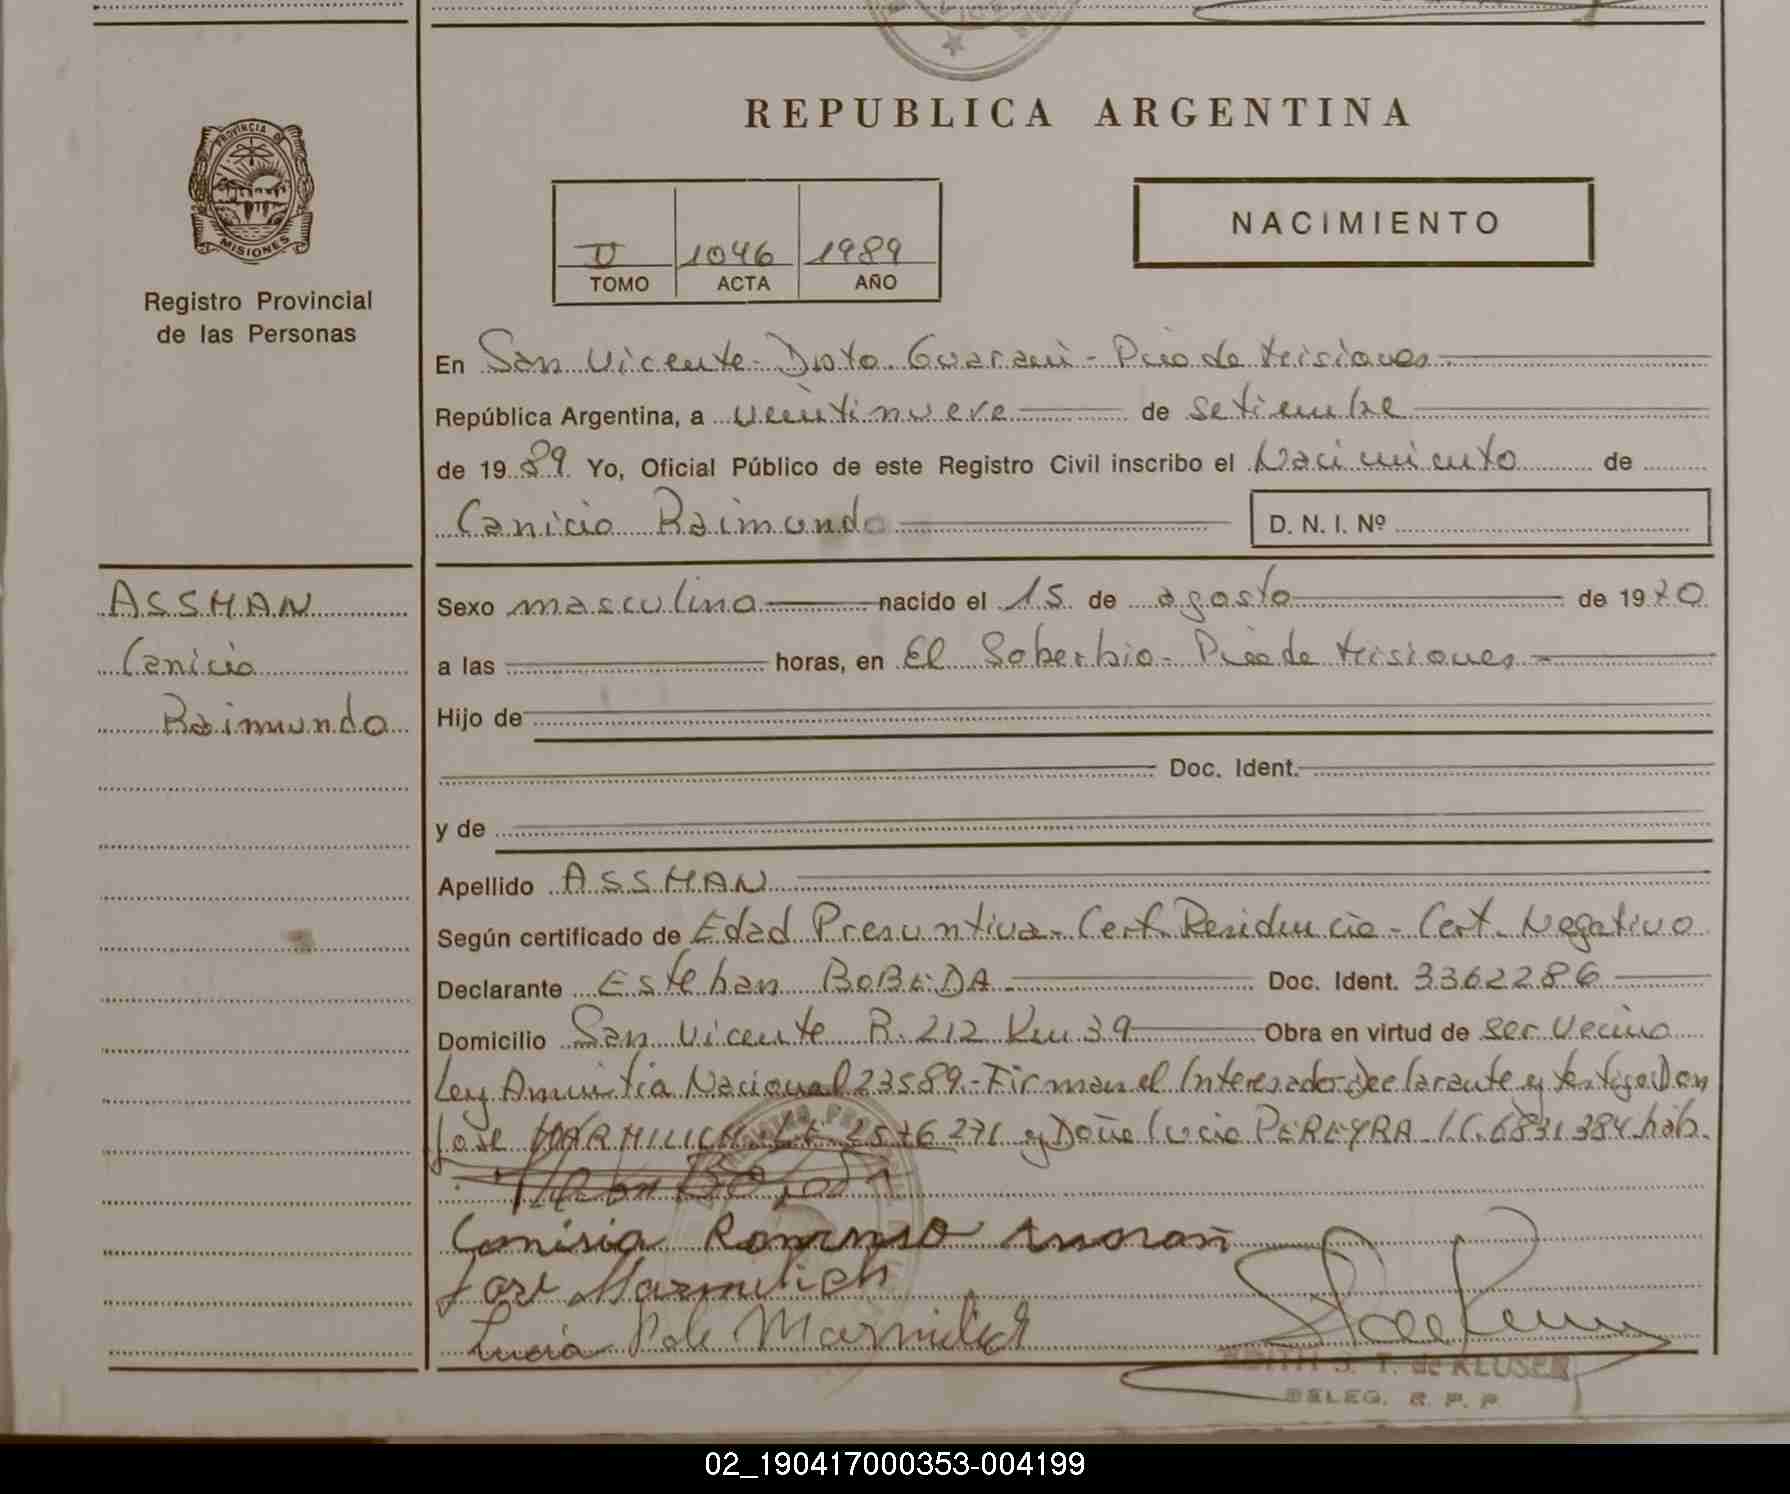 REPUBLICA ARGENTINA
PROVINCIA DE
MISIONES
Registro Provincial
de las Personas
II 1046 1989
TOMO ACTA AÑO
NACIMIENTO
En San Vicente - Dpto. Guarani - Pcia de Misiones
República Argentina, a veintinueve de setiembre
de 1989. Yo, Oficial Público de este Registro Civil inscribo el Nacimiento de
Canicio Raimundo D. N. I. Nº
ASSMAN
Canicio
Raimundo
Sexo masculino nacido el 15 de agosto de 1970
a las horas, en El Soberbio - Pcia de Misiones
Hijo de
Doc. Ident.
y de
Apellido ASSMAN
Según certificado de Edad Presuntiva - Cert. Residencia - Cert. Negativo
Declarante Esteban BOBEDA Doc. Ident. 3362286
Domicilio San Vicente R. 212 Km 39 Obra en virtud de ser vecino
Ley Amnistia Nacional 23589 - Firman el Interesado Declarante y testigo: Don
Jose MARMILICH 2576271 y Doña Lucia PEREYRA L.C. 6831384 hab.
Jose Marmilich
Lucia Marmilich
EDITH S. T. de KLUSEN
DELEG. R. P. P.
02_190417000353-004199